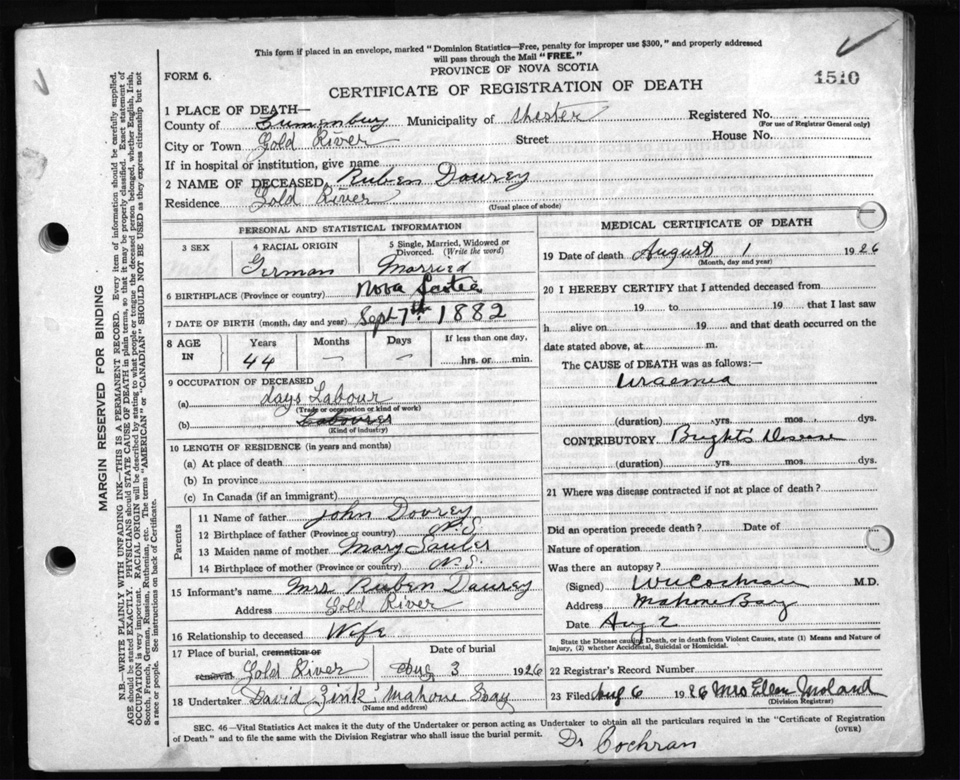 This form if placed in an envelope, marked "Dominion Statistics—Free, penalty for improper use $300," and properly addressed
will pass through the Mail "FREE."
PROVINCE OF NOVA SCOTIA
FORM 6.
1510
CERTIFICATE OF REGISTRATION OF DEATH
1 PLACE OF DEATH—
County of Lunenburg Municipality of Chester Registered No.
(For use of Registrar General only)
City or Town Gold River Street House No.
If in hospital or institution, give name
2 NAME OF DECEASED Ruben Daurey
Residence Gold River
(Usual place of abode)
PERSONAL AND STATISTICAL INFORMATION
3 SEX 4 RACIAL ORIGIN 5 Single, Married, Widowed or
Divorced. (Write the word)
German Married
6 BIRTHPLACE (Province or country) Nova Scotia
7 DATE OF BIRTH (month, day and year) Sept 7th 1882
8 AGE IN Years Months Days If less than one day,
44 — — hrs. or min.
9 OCCUPATION OF DECEASED
(a) days Labour
(Trade or occupation or kind of work)
(b) Labourer
(Kind of industry)
10 LENGTH OF RESIDENCE (in years and months)
(a) At place of death
(b) In province
(c) In Canada (if an immigrant)
Parents
11 Name of father John Dorey
12 Birthplace of father (Province or country) N.S.
13 Maiden name of mother Mary
14 Birthplace of mother (Province or country) N.S.
15 Informant's name Mrs Ruben Daurey
Address Gold River
16 Relationship to deceased Wife
17 Place of burial, cremation or Date of burial
removal Gold River Aug 3 1926
18 Undertaker David Zink Mahone Bay
(Name and address)
MEDICAL CERTIFICATE OF DEATH
19 Date of death August 1 1926
(Month, day and year)
20 I HEREBY CERTIFY that I attended deceased from
19 to 19 that I last saw
h alive on 19 and that death occurred on
date stated above, at m.
The CAUSE of DEATH was as follows:—
Uraemia
(duration) yrs. mos. dys.
CONTRIBUTORY Bright's Disease
(duration) yrs. mos. dys.
21 Where was disease contracted if not at place of death?
Did an operation precede death? Date of
Nature of operation
Was there an autopsy?
(Signed) Cochran M.D.
Address Mahone Bay
Date Aug 2
State the Disease causing Death, or in death from Violent Causes, state (1) Means and Nature of
Injury, (2) whether Accidental, Suicidal or Homicidal.
22 Registrar's Record Number
23 Filed Aug 6 1926 Mrs Ellen
(Division Registrar)
SEC. 46—Vital Statistics Act makes it the duty of the Undertaker or person acting as Undertaker to obtain all the particulars required in the "Certificate of Registration
of Death" and to file the same with the Division Registrar who shall issue the burial permit.
(OVER)
Dr Cochran
MARGIN RESERVED FOR BINDING
N.B.—WRITE PLAINLY WITH UNFADING INK—THIS IS A PERMANENT RECORD. Every item of information should be carefully supplied.
AGE should be stated EXACTLY. PHYSICIANS should STATE CAUSE OF DEATH in plain terms, so that it may be properly classified. Exact statement of
OCCUPATION is very important. RACIAL ORIGIN will be described by stating to what people or tongue the deceased person belonged, whether English, Irish,
Scotch, French, German, Russian, Ruthenian, etc. The terms "AMERICAN" or "CANADIAN" SHOULD NOT BE USED as they express citizenship but not
a race or people. See instructions on back of Certificate.